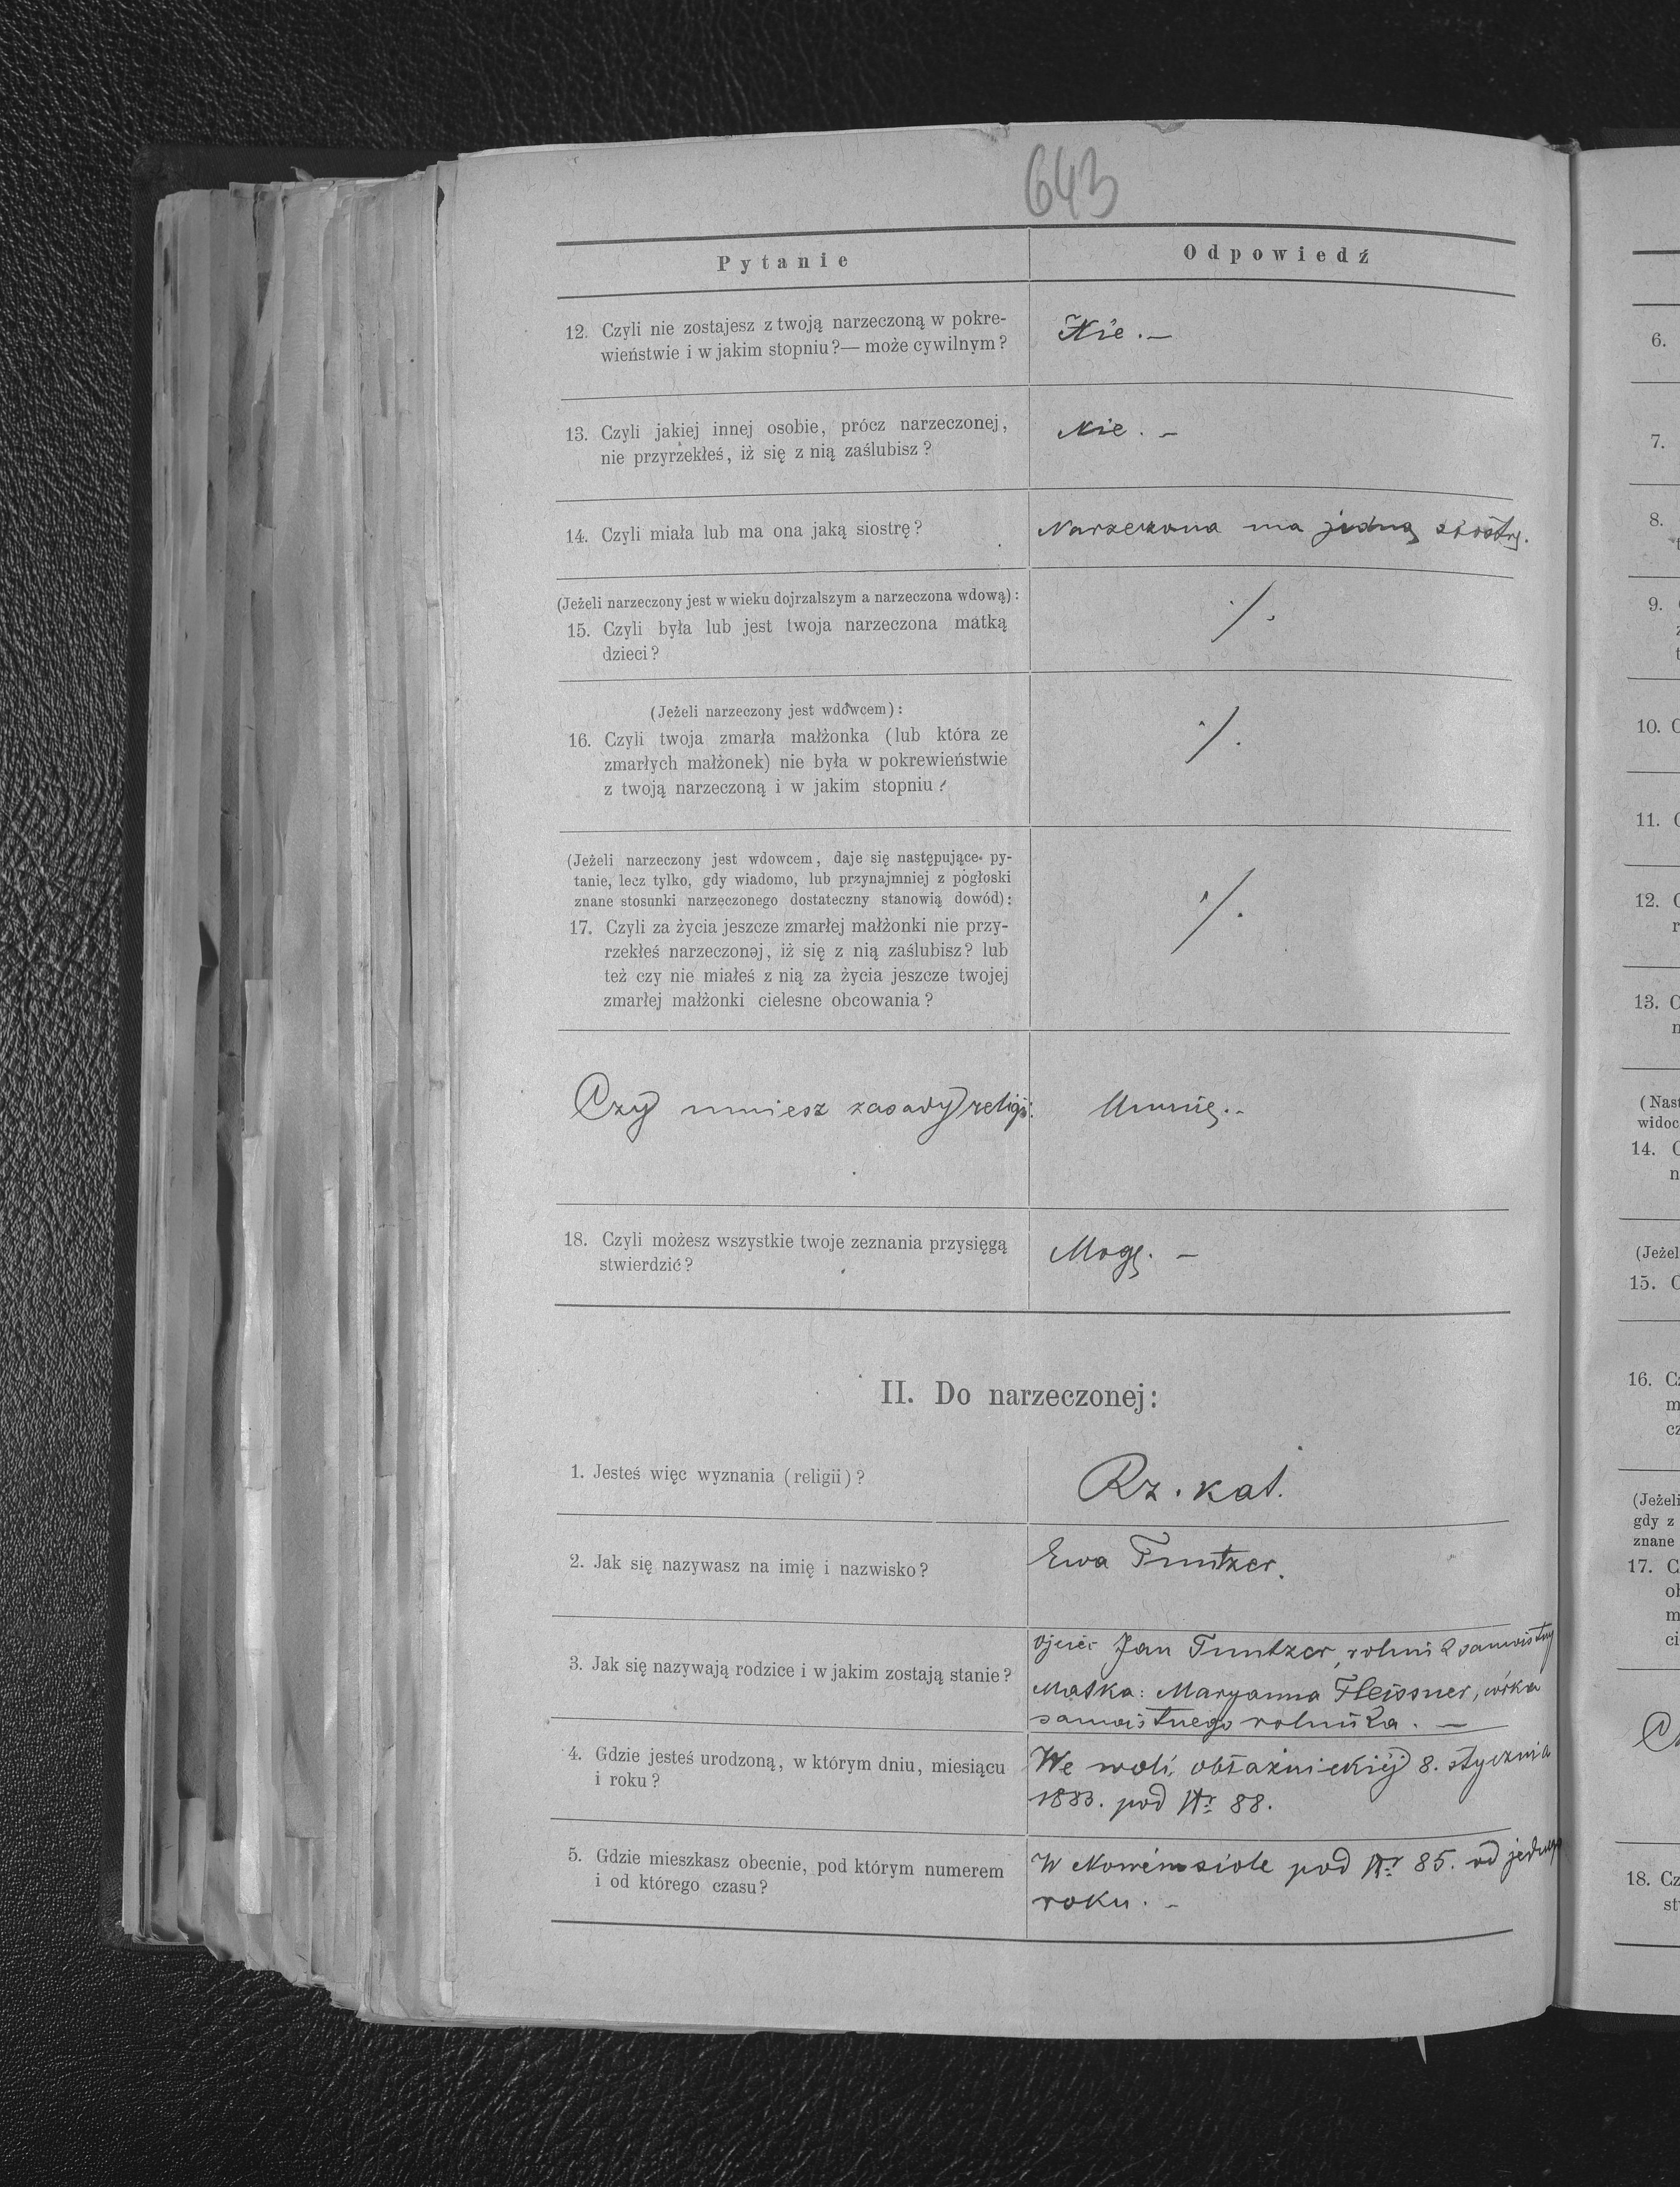 643
Pytanie
Odpowiedź
12. Czyli nie zostajesz z twoją narzeczoną w pokre-
wieństwie i w jakim stopniu?— może cywilnym?
Nie.—
13. Czyli jakiej innej osobie, prócz narzeczonej,
nie przyrzekłeś, iż się z nią zaślubisz?
Nie. —
14. Czyli miała lub ma ona jaką siostrę?
Narzeczona ma jedną siostrę.
(Jeżeli narzeczony jest w wieku dojrzalszym a narzeczona wdową):
15. Czyli była lub jest twoja narzeczona matką
dzieci?
·/.
(Jeżeli narzeczony jest wdowcem):
16. Czyli twoja zmarła małżonka (lub która ze
zmarłych małżonek) nie była w pokrewieństwie
z twoją narzeczoną i w jakim stopniu?
·/.
(Jeżeli narzeczony jest wdowcem, daje się następujące py-
tanie, lecz tylko, gdy wiadomo, lub przynajmniej z pogłoski
znane stosunki narzeczonego dostateczny stanowią dowód):
17. Czyli za życia jeszcze zmarłej małżonki nie przy-
rzekłeś narzeczonej, iż się z nią zaślubisz? lub
też czy nie miałeś z nią za życia jeszcze twojej
zmarłej małżonki cielesne obcowania?
·/.
Czy umiesz zasady religii:
Umię.-
18. Czyli możesz wszystkie twoje zeznania przysięgą
stwierdzić?
Mogę. —
II. Do narzeczonej:
1. Jesteś więc wyznania (religii)?
Rz. kat.
2. Jak się nazywasz na imię i nazwisko?
Ewa
3. Jak się nazywają rodzice i w jakim zostają stanie?
Ojciec Jan rolnik samoistny
Matka: Maryanna Fleissner, córka
samoistnego rolnika. —
4. Gdzie jesteś urodzoną, w którym dniu, miesiącu
i roku?
We woli obłaźnickiéj 8. stycznia
1883. pod Nr 88.
5. Gdzie mieszkasz obecnie, pod którym numerem
i od którego czasu?
W Nowémsiole pod Nr 85. od jednego
roku. -
6.
7.
8.
9.
10.
11.
12.
13.
(Nast
widoc
14.
(Jeżel
15.
16.
(Jeżeli
gdy z
znane
17.
18.